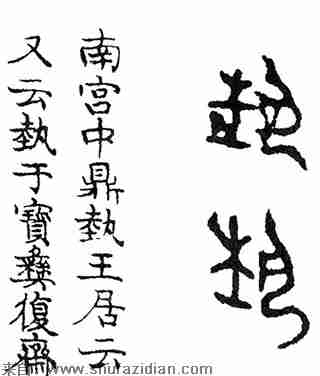 南宮中鼎埶王居云
又云埶于寶彝復齋
来自：www.shufazidian.com